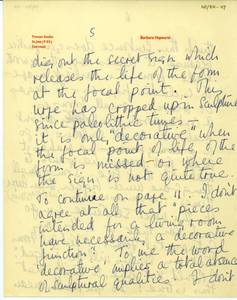 5
Barbara Hepworth
Trewyn Studio
St. Ives
Cornwall
dig out the secret sign which
releases the life of the form
at the focal point. This
urge has cropped up in sculpture
since paleolithic times –
it is only "decorative" when
the focal point of life, of the
form is missed – or where
the sign is not quite true.
To continue on page 11. I don't
agree at all that "pieces
intended for a living room
have necessarily a decorative
function". To me the word
"decorative" implies a total absence
of sculptural qualities. I don't